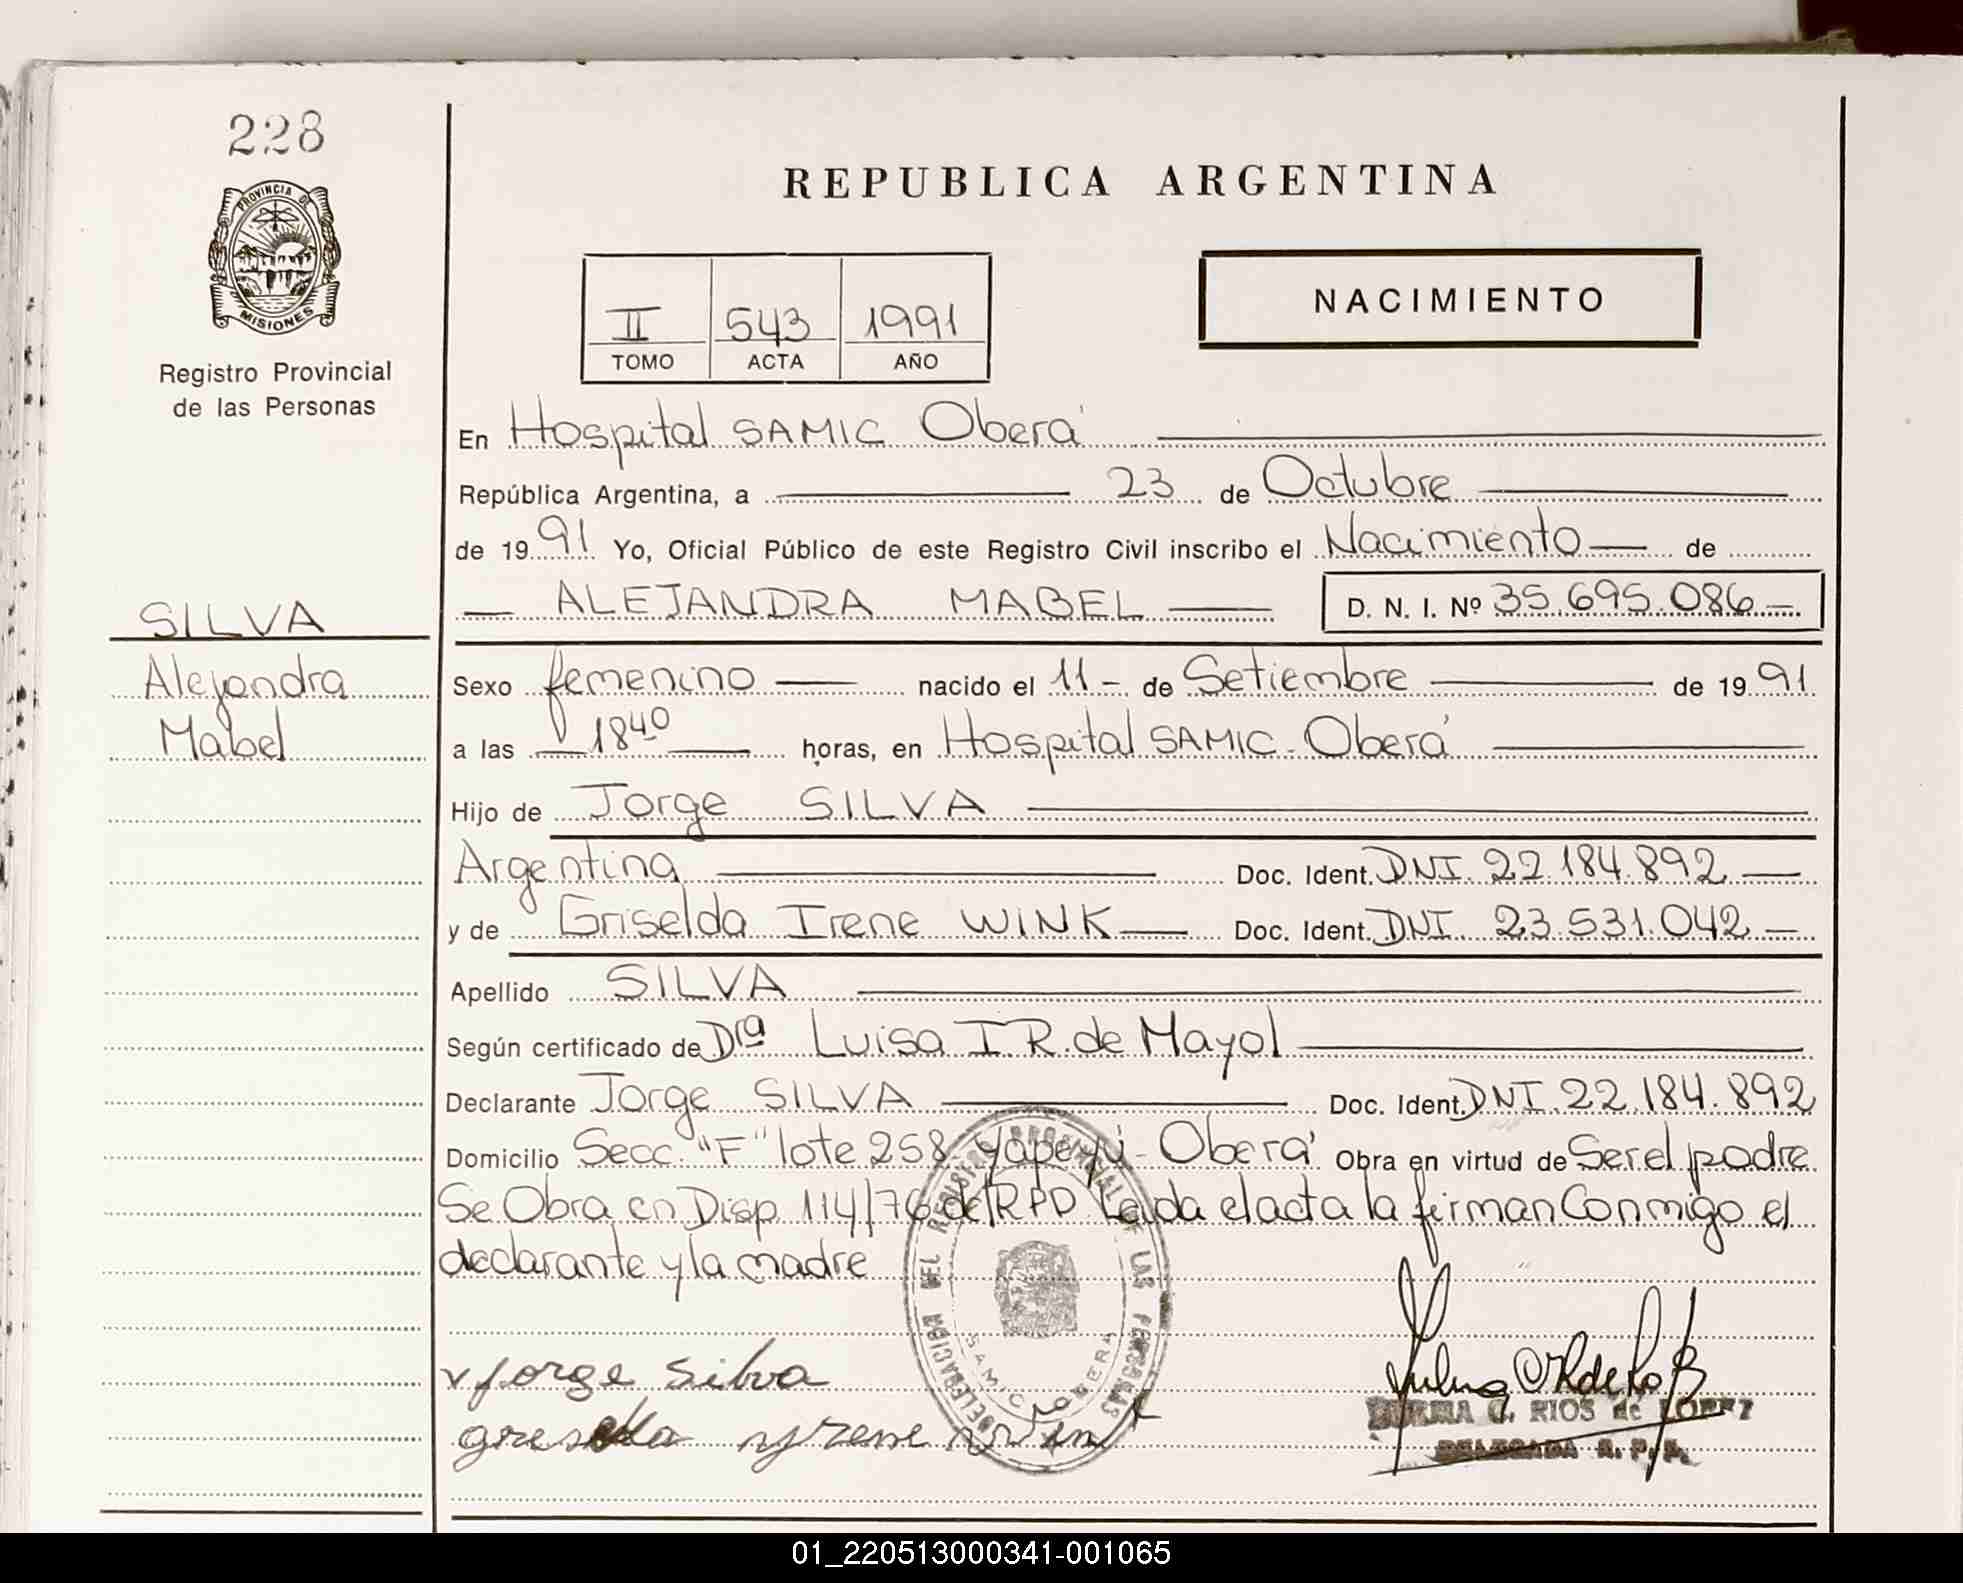 228
PROVINCIA DE
MISIONES
Registro Provincial
de las Personas
REPUBLICA ARGENTINA
II 543 1991
TOMO ACTA AÑO
NACIMIENTO
En Hospital SAMIC Oberá
República Argentina, a 23 de Octubre
de 1991 Yo, Oficial Público de este Registro Civil inscribo el Nacimiento de
ALEJANDRA MABEL D. N. I. Nº 35.695.086
SILVA
Alejandra
Mabel
Sexo femenino nacido el 11 - de Setiembre de 1991
a las 18 40 horas, en Hospital SAMIC - Oberá
Hijo de Jorge SILVA
Argentina Doc. Ident. DNI. 22.184.892
y de Griselda Irene WINK Doc. Ident. DNI. 23.531.042
Apellido SILVA
Según certificado de Drª Luisa I R. de Mayol
Declarante Jorge SILVA Doc. Ident. DNI. 22.184.892
Domicilio Secc. "F" lote 258 Yapeyú - Oberá Obra en virtud de Ser el padre
Se Obra en Disp 114/76 del RPD Leida el acta la firman Conmigo el
declarante y la madre
DELEGACION DEL REGISTRO PROVINCIAL DE LAS PERSONAS
SAMIC OBERA
Jorge Silva
RIOS de LOPEZ
DELEGADA R. P. P.
01_220513000341-001065